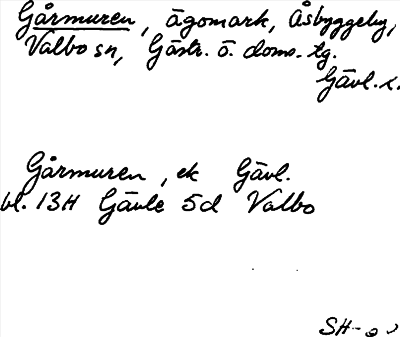 Gårmuren, ägomark, Åsbyggeby,
Valbo sn, Gästr. ö. doms. tg.
Gävl. l.
Gårmuren, ek Gävl.
bl. 13H Gävle 5d Valbo
SH-